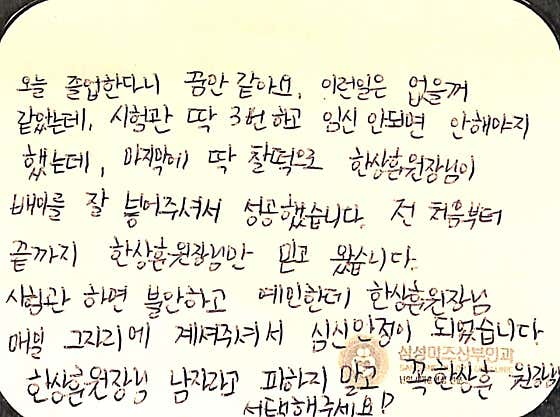 오늘 졸업한다니 꿈만 같아요. 이런일은 없을꺼
같았는데, 시험관 딱 3번 하고 임신 안되면 안해야지
했는데, 마지막에 딱 찰떡으로 한상훈원장님이
배아를 잘 붙여주셔서 성공했습니다. 전 처음부터
끝까지 한상훈원장님만 믿고 왔습니다.
시험관 하면 불안하고 예민한데 한상훈원장님
매일 그자리에 계셔주셔서 심신안정이 되었습니다
삼성미즈산부인과
한상훈원장님 남자라고 피하지 말고 꼭 한상훈 원장님
선택해주세요!